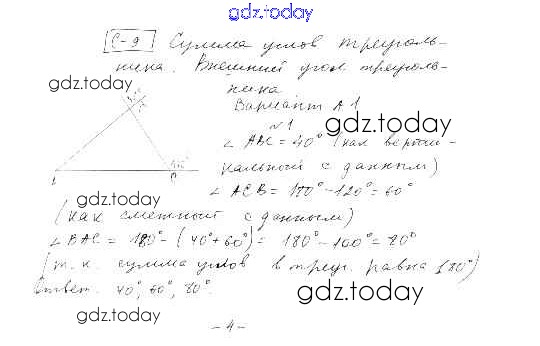 gdz.today
С-9 Сумма углов треуголь-
ника. Внешний угол треуголь-
gdz.today
ника
Вариант А1
№1
gdz.today
∠ ABC = 40° (как верти-
кальный с данным)
gdz.today
∠ ACB = 180° - 120° = 60°
(как смежный с данным)
∠ BAC = 180° - (40° + 60°) = 180° - 100° = 80°
gdz.today
(т.к. сумма углов в треуг. равна 180°)
Ответ. 40°, 60°, 80°.
gdz.today
gdz.today
- 4 -